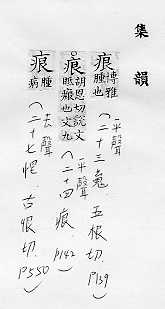 集韻
痕 博雅腫也（平聲二十三䰟 五根切 P139）
痕 胡恩切說文胝瘢也文九（平聲二十四痕 P142）
痕 腫病（去聲二十七恨 古恨切 P550）